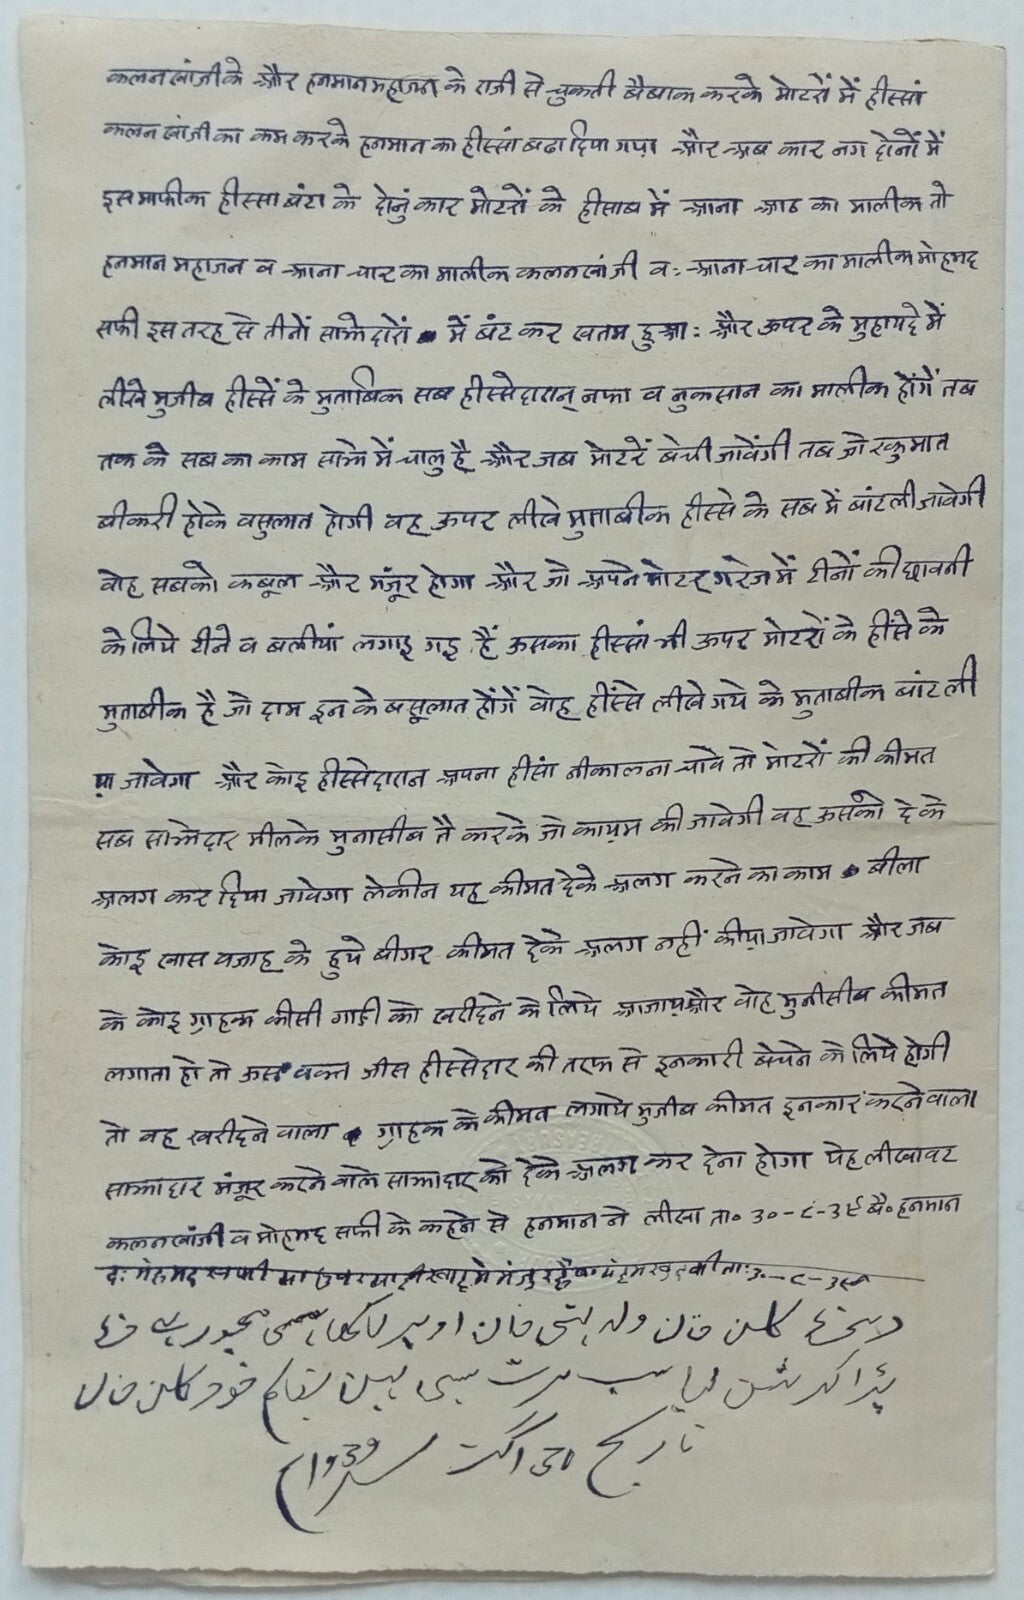 कलनखांजी के और हनमान महाजन के राजी से चुकती बैबाक करके मोटरों में हीस्सां
कलनखांजी का कम करके हनमान का हीस्सां बढा दिया गया और अब कार नग दोनों में
इस माफीक हीस्सा बंटा के दोनुं कार मोटरों के हीसाब में आना आठ का मालीक तो
हनमान महाजन व आना चार का मालीक कलनखांजी वः आना चार का मालीक मोहमद
सफी इस तरह से तीनों साझेदारों में बंट कर खतम हुआः और ऊपर के मुहायदे में
लीखे मुजीब हीस्सें के मुताबिक सब हीस्सेदारान् नफा व नुकसान का मालीक होंगें तब
तक के सब का काम साझे में चालु है और जब मोटरें बेची जावेंगी तब जो रकुमात
बीकरी होके वसुलात होगी वह ऊपर लीखे मुताबीक हीस्से के सब में बांटली जावेगी
वोह सबको कबूल और मंजूर होगा और जो अपने मोटर गरेज में टीनों की छावनी
के लिये टीने व बलीयां लगाइ गइ हैं उसका हीस्सां भी ऊपर मोटरों के हींसे के
मुताबीक है जो दाम इन के बसूलात होंगें वोह हींस्से लीखे गये के मुताबीक बांट ली
या जावेगा और कोइ हीस्सेदारान अपना हीसां नीकालना चावे तो मोटरों की कीमत
सब साझेदार मीलके मुनासीब तै करके जो कायम की जावेगी वह उसको दे के
अलग कर दिया जावेगा लेकीन यह कीमत देके अलग करने का काम बीला
कोइ खास वजाह के हुये बीगर कीमत देके अलग नहीं कीया जावेगा और जब
के कोइ ग्राहक कीसी गाडी को खरीदने के लिये आजाय और वोह मुनीसीब कीमत
लगाता हो तो उस वक्त जीस हीस्सेदार की तरफ से इनकारी बेचने के लिये होगी
तो वह खरीदने वाला ग्राहक के कीमत लगाये मुजीब कीमत इनकार करनेवाला
साझादार मंजूर करने वाले साझादार को देके अलग कर देना होगा येह लीखावट
कलनखांजी व मोहमद सफी के कहने से हनमान ने लीखा ता० ३०-८-३९ बै० हनमान
दः मोहमद सफी ऊपर मंजुर है ता: ३०-८-३९
کلن خان ولد خان
بقلم خود کلن خان
تاریخ 30 اگست سنہ 1939